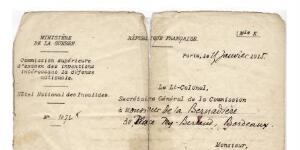 MINISTÈRE
DE LA GUERRE
RÉPUBLIQUE FRANÇAISE.
Mle K
Paris, le janvier 1915.
Commission supérieure
d'examen des inventions
intéressant la défense
nationale.
Hôtel National des Invalides.
N°
Le Lt-Colonel,
Secrétaire Général de la Commission
à Monsieur de la Bernardière
Place Bordeaux.
Monsieur,